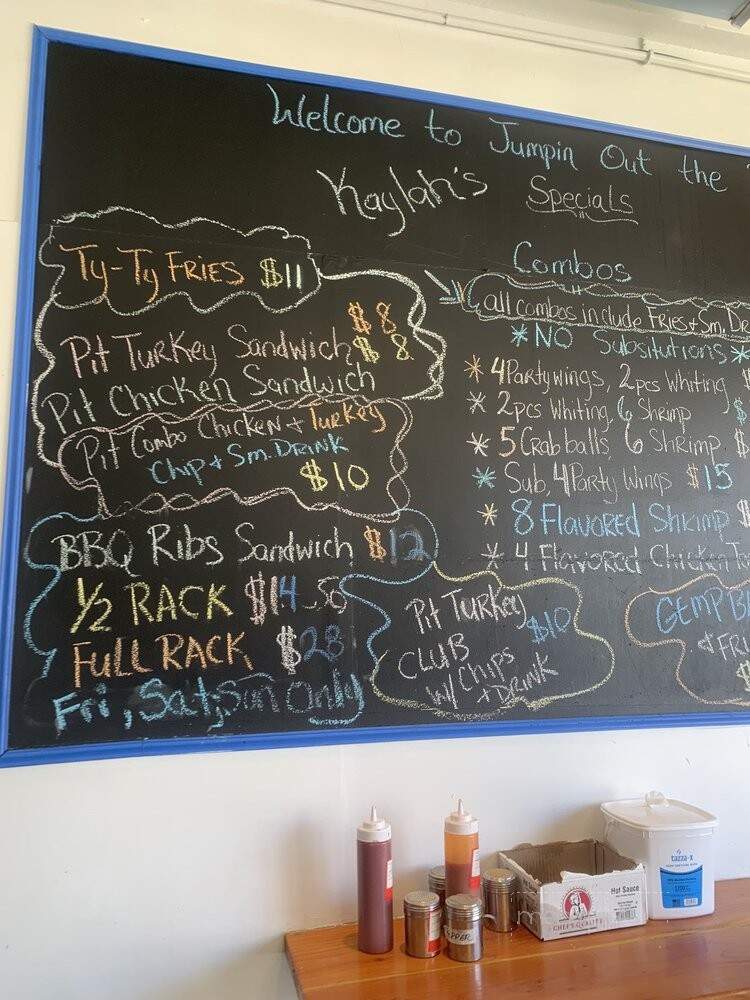 Welcome to Jumpin Out the
Kaylah's Specials
Ty-Ty FRIES $11
$8
Pit Turkey Sandwich $8
Pit Chicken Sandwich
Pit Combo Chicken + Turkey
Chip + Sm. DRINK
$10
BBQ Ribs Sandwich $12
1/2 RACK $14.50
FULL RACK $28
Fri, Sat, Sun Only
Pit Turkey
CLUB $10
W/ Chips
+ DRINK
Combos
all combos include FRIES + Sm. Dr
*NO Subsitutions*
* 4 Party wings, 2pcs Whiting $
* 2pcs Whiting, 6 Shrimp $
* 5 Crab balls, 6 Shrimp $
* Sub, 4 Party Wings $15
* 8 FLAVORED Shrimp $
* 4 Flavored Chicken
GEMP B
+ FR
PEPPER
Hot Sauce
CHEF'S QUALITY
tazza-x